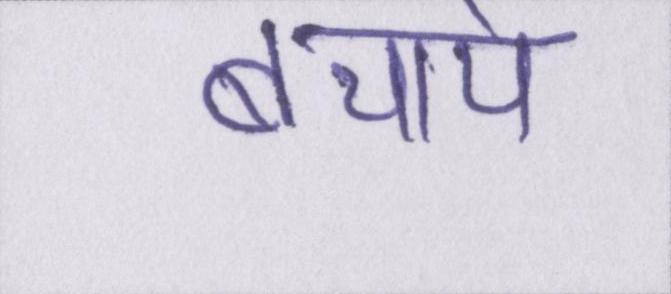 बचाये